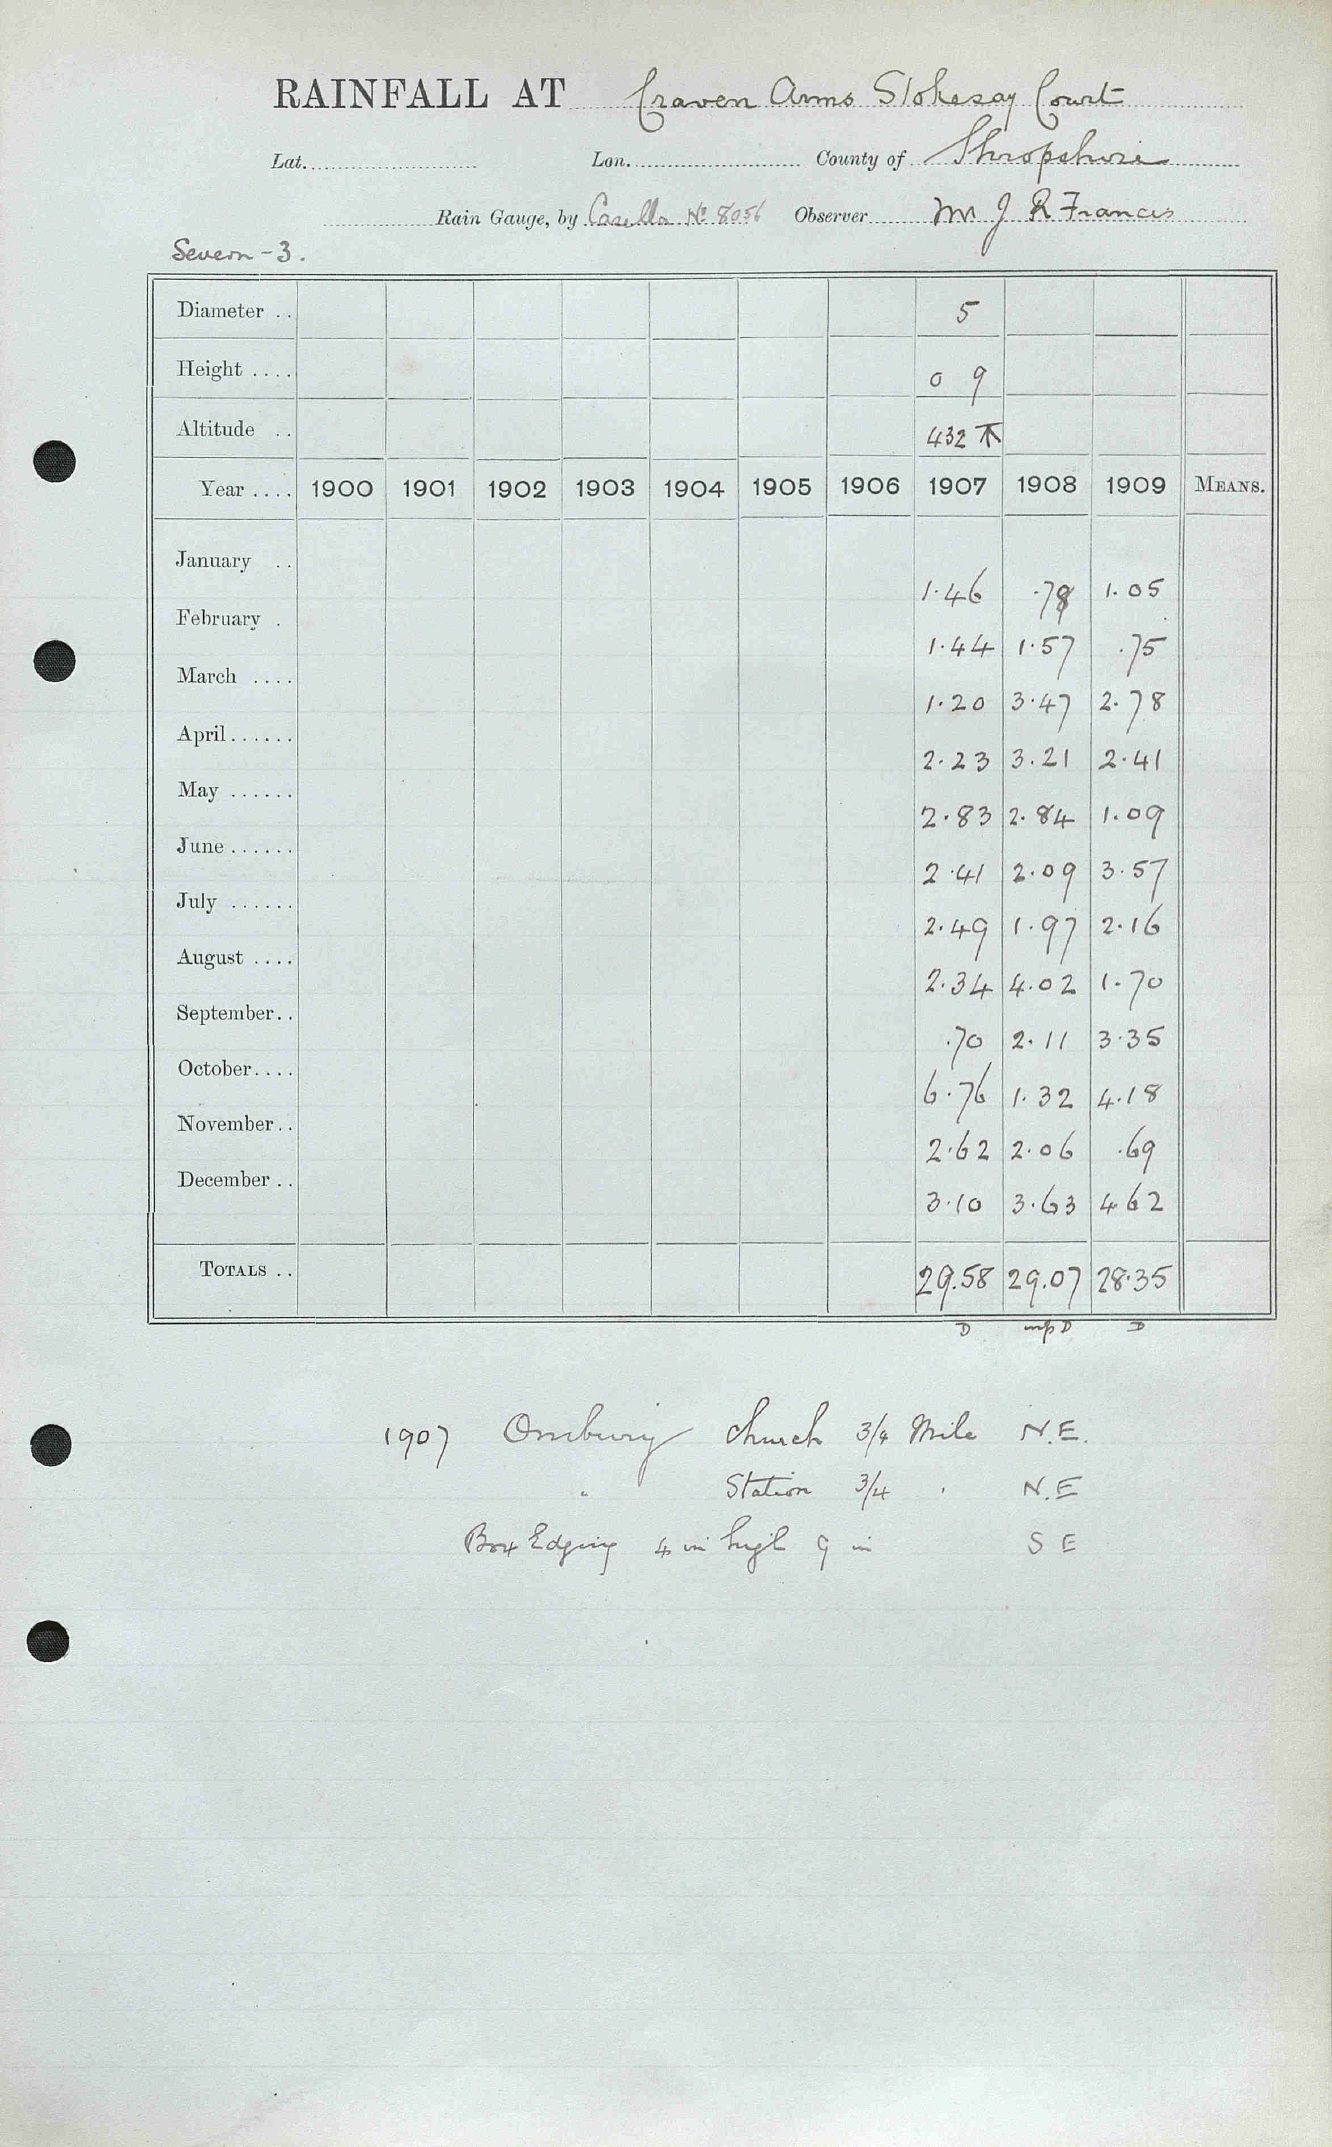 RAINFALL AT Craven Arms Stokesay Court
Lat. Lon. County of Shropshire
Rain Gauge, by Casella No 8056 Observer Mr J R Francis
Severn - 3.
Diameter .. 5
Height .... 0 9
Altitude .. 432
Year .... 1900 1901 1902 1903 1904 1905 1906 1907 1908 1909 MEANS.
January .. 1.46 .78 1.05
February . 1.44 1.57 .75
March .... 1.20 3.47 2.78
April...... 2.23 3.21 2.41
May ...... 2.83 2.84 1.09
June ...... 2.41 2.09 3.57
July ...... 2.49 1.97 2.16
August .... 2.34 4.02 1.70
September.. .70 2.11 3.35
October.... 6.76 1.32 4.18
November.. 2.62 2.06 .69
December .. 3.10 3.63 4.62
TOTALS .. 29.58 29.07 28.35
D D D
1907 Onibury church 3/4 Mile N.E.
" Station 3/4 " N.E
Box Edging 4 in high 9 in S E